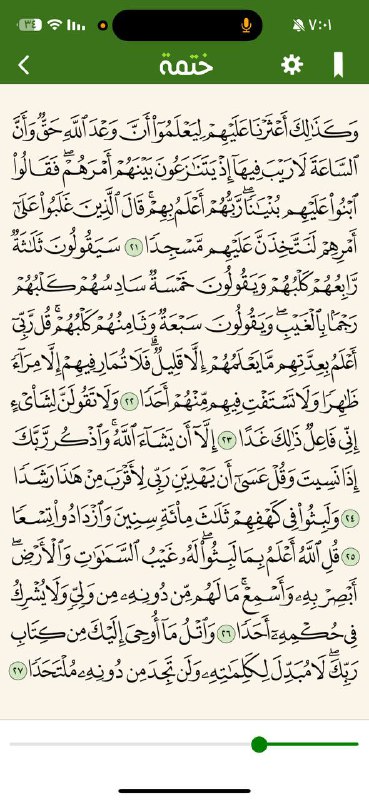 ٧:٠١
٣٤
ختمة
وَكَذَٰلِكَ أَعْثَرْنَا عَلَيْهِمْ لِيَعْلَمُوٓا۟ أَنَّ وَعْدَ ٱللَّهِ حَقٌّ وَأَنَّ
ٱلسَّاعَةَ لَا رَيْبَ فِيهَآ إِذْ يَتَنَٰزَعُونَ بَيْنَهُمْ أَمْرَهُمْ ۖ فَقَالُوا۟
ٱبْنُوا۟ عَلَيْهِم بُنْيَٰنًا ۖ رَّبُّهُمْ أَعْلَمُ بِهِمْ ۚ قَالَ ٱلَّذِينَ غَلَبُوا۟ عَلَىٰٓ
أَمْرِهِمْ لَنَتَّخِذَنَّ عَلَيْهِم مَّسْجِدًا ٢١ سَيَقُولُونَ ثَلَٰثَةٌ
رَّابِعُهُمْ كَلْبُهُمْ وَيَقُولُونَ خَمْسَةٌ سَادِسُهُمْ كَلْبُهُمْ
رَجْمًۢا بِٱلْغَيْبِ ۖ وَيَقُولُونَ سَبْعَةٌ وَثَامِنُهُمْ كَلْبُهُمْ ۚ قُل رَّبِّىٓ
أَعْلَمُ بِعِدَّتِهِم مَّا يَعْلَمُهُمْ إِلَّا قَلِيلٌ ۗ فَلَا تُمَارِ فِيهِمْ إِلَّا مِرَآءً
ظَٰهِرًا وَلَا تَسْتَفْتِ فِيهِم مِّنْهُمْ أَحَدًا ٢٢ وَلَا تَقُولَنَّ لِشَا۟ىْءٍ
إِنِّى فَاعِلٌ ذَٰلِكَ غَدًا ٢٣ إِلَّآ أَن يَشَآءَ ٱللَّهُ ۚ وَٱذْكُر رَّبَّكَ
إِذَا نَسِيتَ وَقُلْ عَسَىٰٓ أَن يَهْدِيَنِ رَبِّى لِأَقْرَبَ مِنْ هَٰذَا رَشَدًا
٢٤ وَلَبِثُوا۟ فِى كَهْفِهِمْ ثَلَٰثَ مِا۟ئَةٍ سِنِينَ وَٱزْدَادُوا۟ تِسْعًا
٢٥ قُلِ ٱللَّهُ أَعْلَمُ بِمَا لَبِثُوا۟ ۖ لَهُۥ غَيْبُ ٱلسَّمَٰوَٰتِ وَٱلْأَرْضِ ۖ
أَبْصِرْ بِهِۦ وَأَسْمِعْ ۚ مَا لَهُم مِّن دُونِهِۦ مِن وَلِىٍّ وَلَا يُشْرِكُ
فِى حُكْمِهِۦٓ أَحَدًا ٢٦ وَٱتْلُ مَآ أُوحِىَ إِلَيْكَ مِن كِتَابِ
رَبِّكَ ۖ لَا مُبَدِّلَ لِكَلِمَٰتِهِۦ وَلَن تَجِدَ مِن دُونِهِۦ مُلْتَحَدًا ٢٧